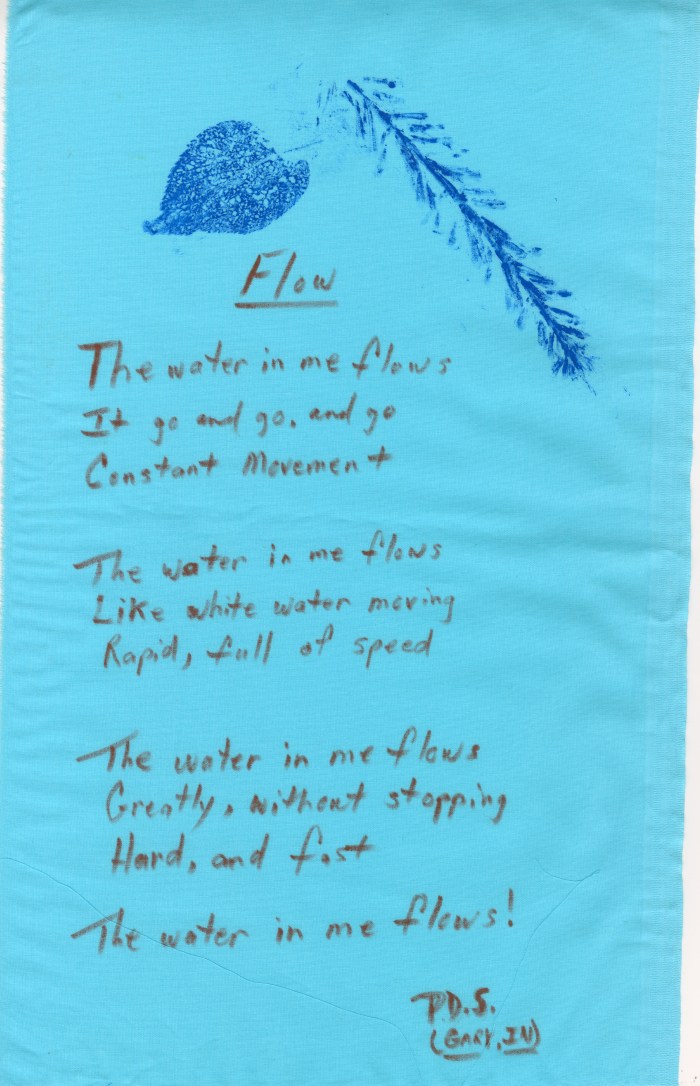 Flow
The water in me flows
It go and go, and go
Constant Movement
The water in me flows
Like white water moving
Rapid, full of speed
The water in me flows
Greatly, without stopping
Hard, and fast
The water in me flows!
P.D.S.
(GARY, IN)